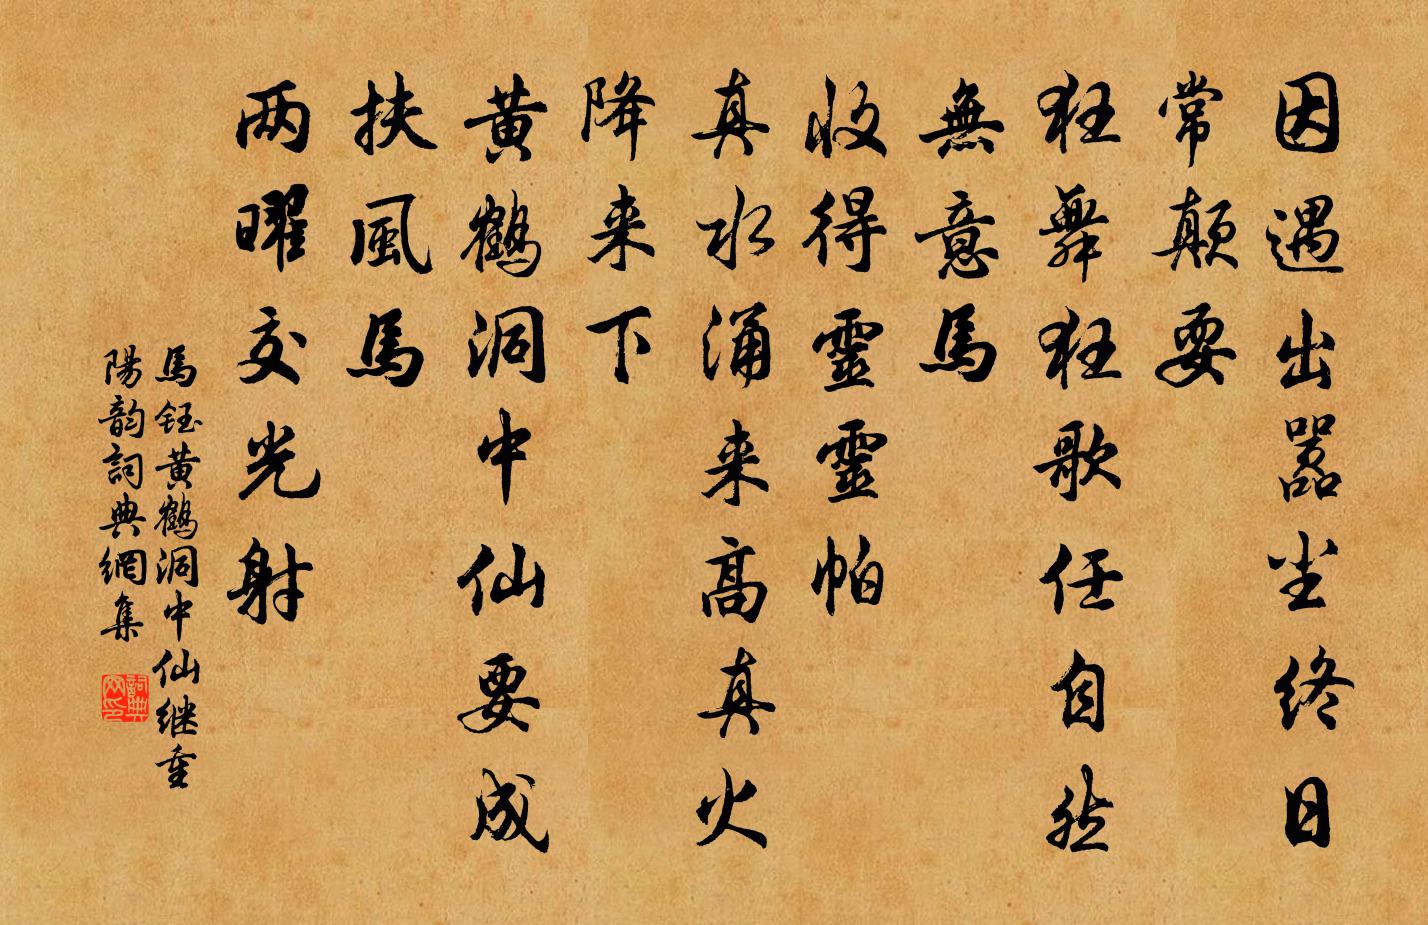 因遇出嚣尘终日
常颠耍
狂舞狂歌任自然
無意馬
收得靈靈帕
真水涌来高真火
降来下
黄鹤洞中仙要成
扶風馬
两曜交光射
馬钰黄鹤洞中仙继重
陽韵詞典網集
詞典网印